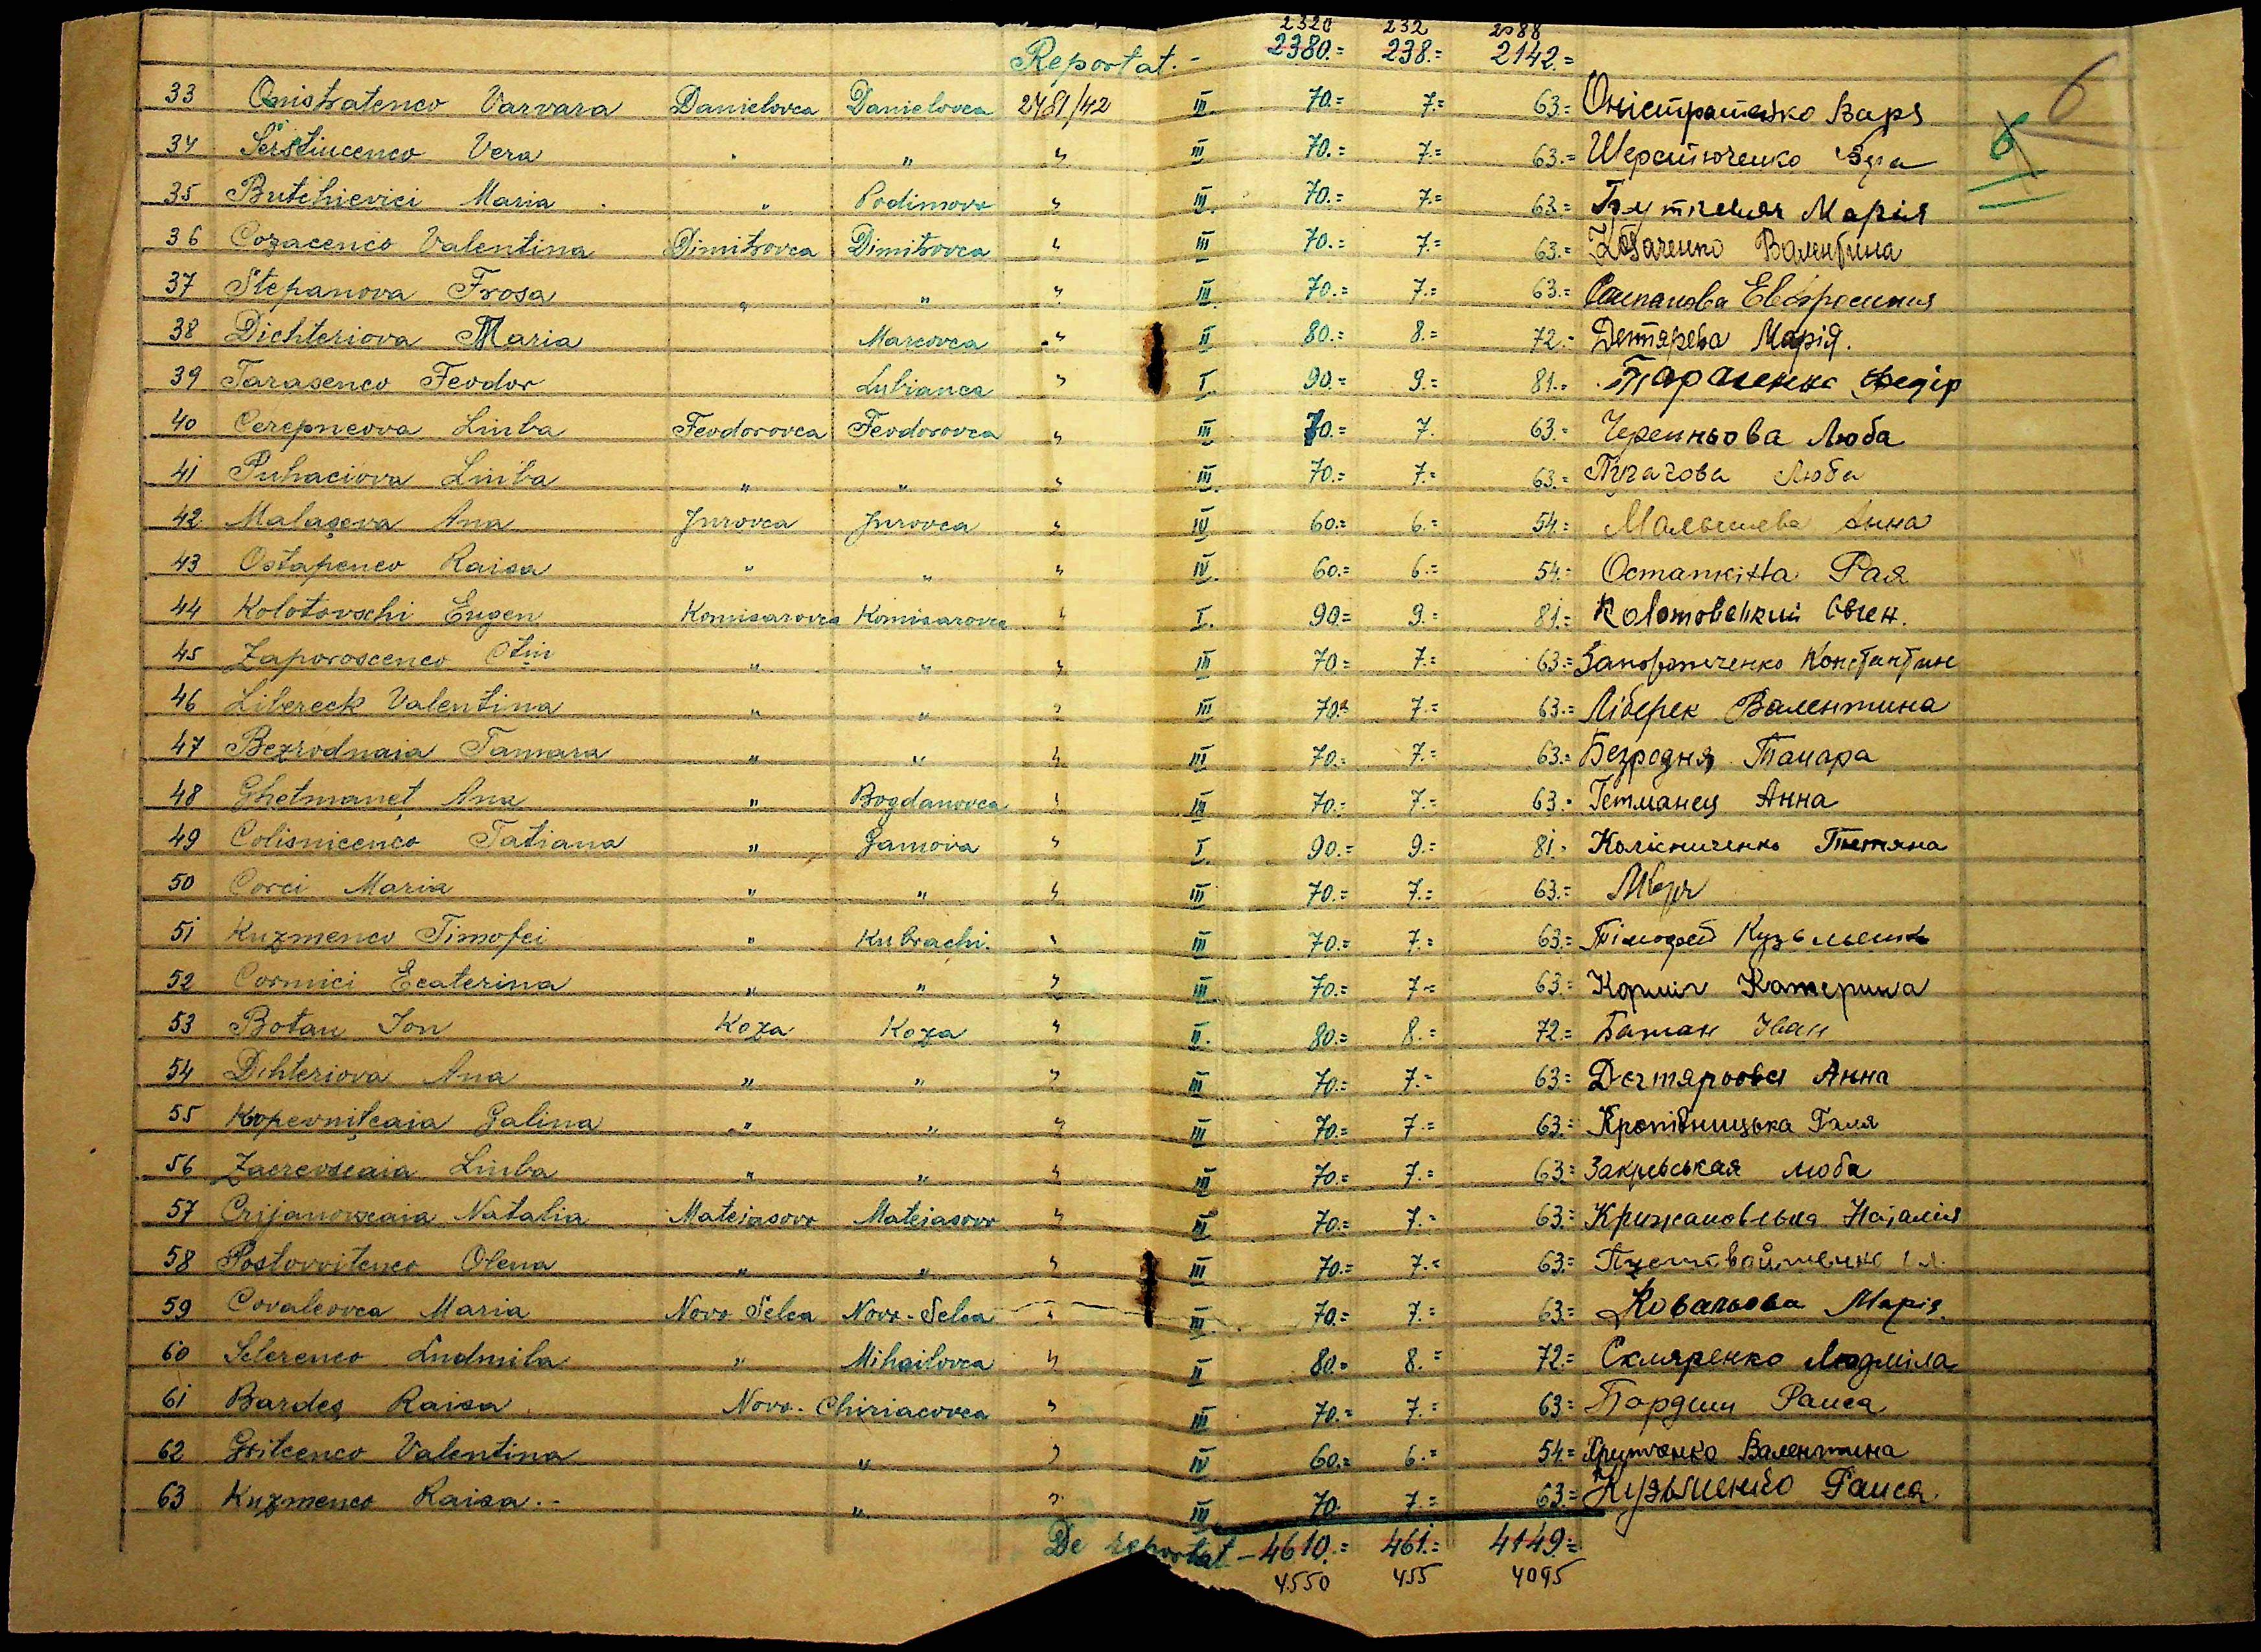 2320 232 2088
Reportat. - 2380.= 238.= 2142.=
6
6
33 Onistratenco Varvara Danielovca Danielovca 2481/42 III. 70.= 7.= 63.= Оністратенко Варя
34 Serstiucenco Vera " " " III 70.= 7.= 63.= Шерстюченко Вера
35 Butchievici Maria " Podimovo " III. 70.= 7.= 63.= Буткевич Марія
36 Cozacenco Valentina Dimitrovca Dimitrovca " III 70.= 7.= 63.= Козаченко Валентина
37 Stepanova Frosa " " " III 70.= 7.= 63.= Степанова Евфросиния
38 Dichteriova Maria Marcovca " II 80.= 8.= 72.- Детярева Марія.
39 Tarasenco Feodor Lubianca " I. 90.= 9.= 81.- Тарасенко Федір
40 Cerepneova Liuba Feodorovca Feodorovca " III 70.= 7. 63.= Черепньова Люба
41 Puhaciova Liuba " " " III. 70.= 7.= 63.= Пугачова Люба
42 Malaşeva Ana Jurovca Jurovca " IV 60.= 6.= 54.= Малышева Анна
43 Ostapenco Raisa " " " IV. 60.= 6.= 54.= Рая
44 Kolotovschi Eugen Komisarovca Komisarovca " I. 90.= 9.= 81.= Колотовский Євген.
45 Zaporoscenco Ctin " " " III 70= 7.= 63.= Запорожченко Константин
46 Libereck Valentina " " " III 70.= 7.= 63.= Ліберек Валентина
47 Bezrodnaia Tamara " " " III 70.= 7.= 63.= Безродня Тамара
48 Ghetmaneţ Ana " Bogdanovca " III 70.= 7.= 63.- Гетманец Анна
49 Colisnicenco Tatiana " Gamova " I. 90.= 9.= 81.- Колісниченко Тетяна
50 Corci Maria " " " III 70.= 7.= 63.=
51 Kuzmenco Timofei " Kubrachi. " III 70.= 7.= 63.= Тімофей Кузьменко
52 Cormici Ecaterina " " " III 70.= 7.= 63.= Корміч Катерина
53 Botan Ion Koza Koza " II. 80.= 8.= 72.= Батан Іван
54 Dihteriova Ana " " " III 70.= 7.= 63.= Дегтярьова Анна
55 Kropevniţcaia Galina " " " III 70.= 7.= 63.= Кропівницька Галя
56 Zacrevscaia Liuba " " " III 70.= 7.= 63.= Закревськая Люба
57 Crijanovscaia Natalia Mateiasovo Mateiasovo " III 70.= 7.= 63.= Крижановська Наталія
58 Postovoitenco Olena " " " III 70.= 7.= 63.= Пустовойтенко
59 Covaleovca Maria Novo Selca Novo-Selca " III. 70.= 7.= 63.= Ковальова Марія.
60 Sclerenco Ludmila " Mihailovca " II 80.= 8.= 72.= Скляренко Людміла
61 Bardeş Raisa. Novo-Chiriacovca " III 70.= 7.= 63.= Раиса
62 Gritcenco Valentina " " IV 60.= 6.= 54.= Гритченко Валентина
63 Kuzmenco Raisa.- " " III. 70. 7.= 63.= Кузьменко Раиса.
De reportat - 4610.= 461.= 4149.=
4550 455 4095